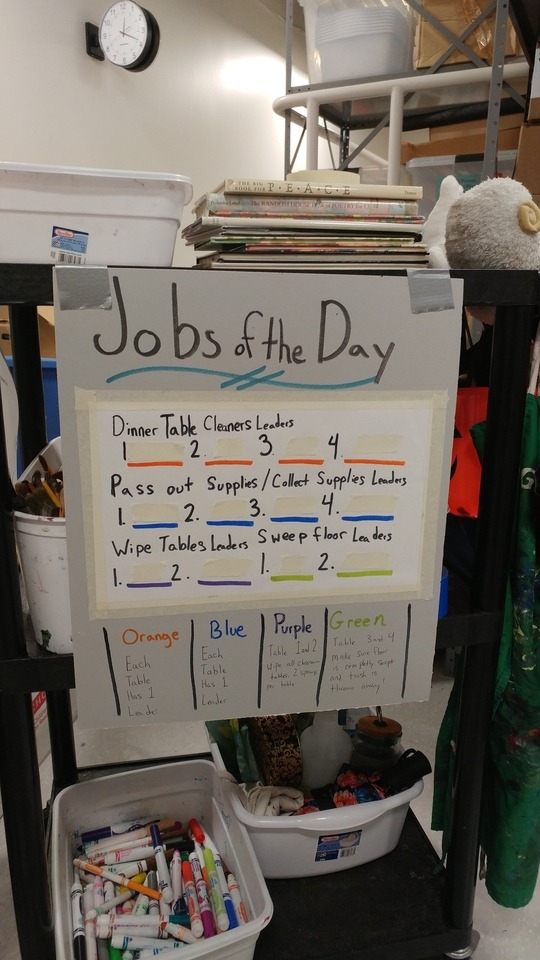 THE BIG BOOK FOR P·E·A·C·E
The RANDOM HOUSE Book of POETRY for Children
Jobs of the Day
Dinner Table Cleaners Leaders
1. 2. 3. 4.
Pass out Supplies/Collect Supplies Leaders
1. 2. 3. 4.
Wipe Tables Leaders Sweep floor Leaders
1. 2. 1. 2.
Orange
Each
Table
Has 1
Leader
Blue
Each
Table
Has 1
Leader
Purple
Table 1 and 2
Wipe all classroom
tables. 2 sponges
per table
Green
Table 3 and 4
make sure floor
is completly swept
and trash is
thrown away!